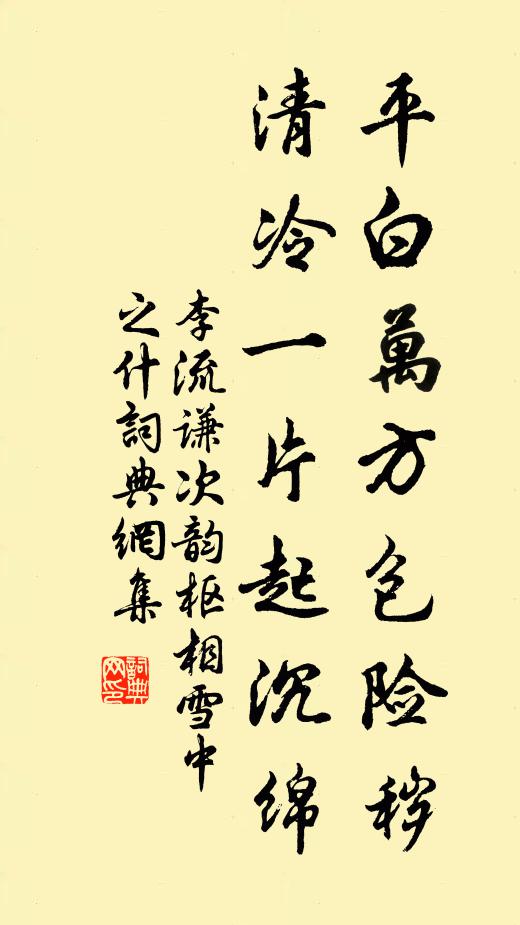 平白萬方包险秽
清冷一片起沉绵
李流谦次韵枢相雪中
之什詞典網集
詞典
网印